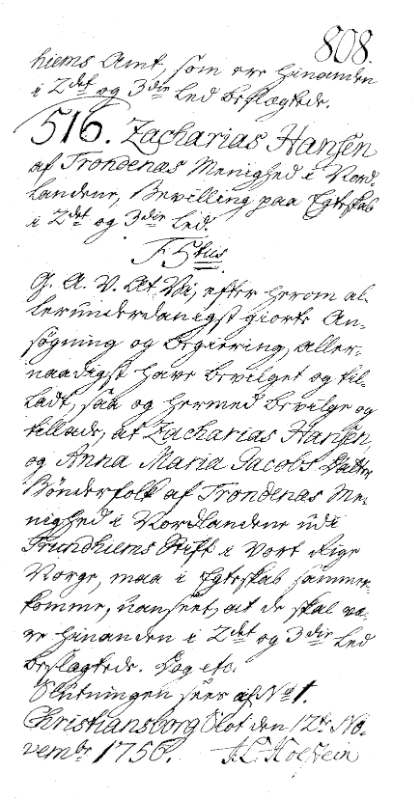 808.
hiems Amt, som ere hinanden
i 2det og 3die Led beslægtede.
516. Zacharias Hansen
af Trondenæs Menighed i Nord-
landene, Bevilling paa Egteskab
i 2det og 3die Led.
F 5tus
G. A. V. At Vi, efter herom al-
lerunderdanigst giorte An-
søgning og Begiering, aller-
naadigst have bevilget og til-
ladt, saa og hermed bevilge og
tillade, at Zacharias Hansen,
og Anna Maria Jacobs Datter
Bønderfolk af Trondenæs Me-
nighed i Nordlandene udi
Trundhiems Stift i Vort Rige
Norge, maa i Egteskab sammen-
komme, uanseet, at de skal væ-
re hinanden i 2det og 3die Led
beslægtede. Dog etc.
Slutningen sees af No 1.
Christiansborg Slot den 12te No-
vembr 1756. J. L. Holstein